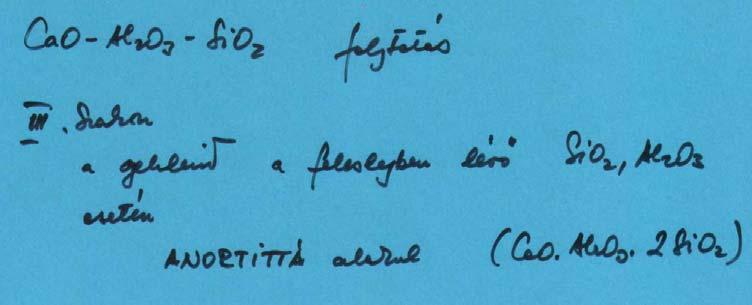 CaO-Al2O3-SiO2 folytatás
III. Szakasz
a gehlenit a feleslegben lévő SiO2, Al2O3
esetén
ANORTITTÁ alakul (CaO.Al2O3.2SiO2)